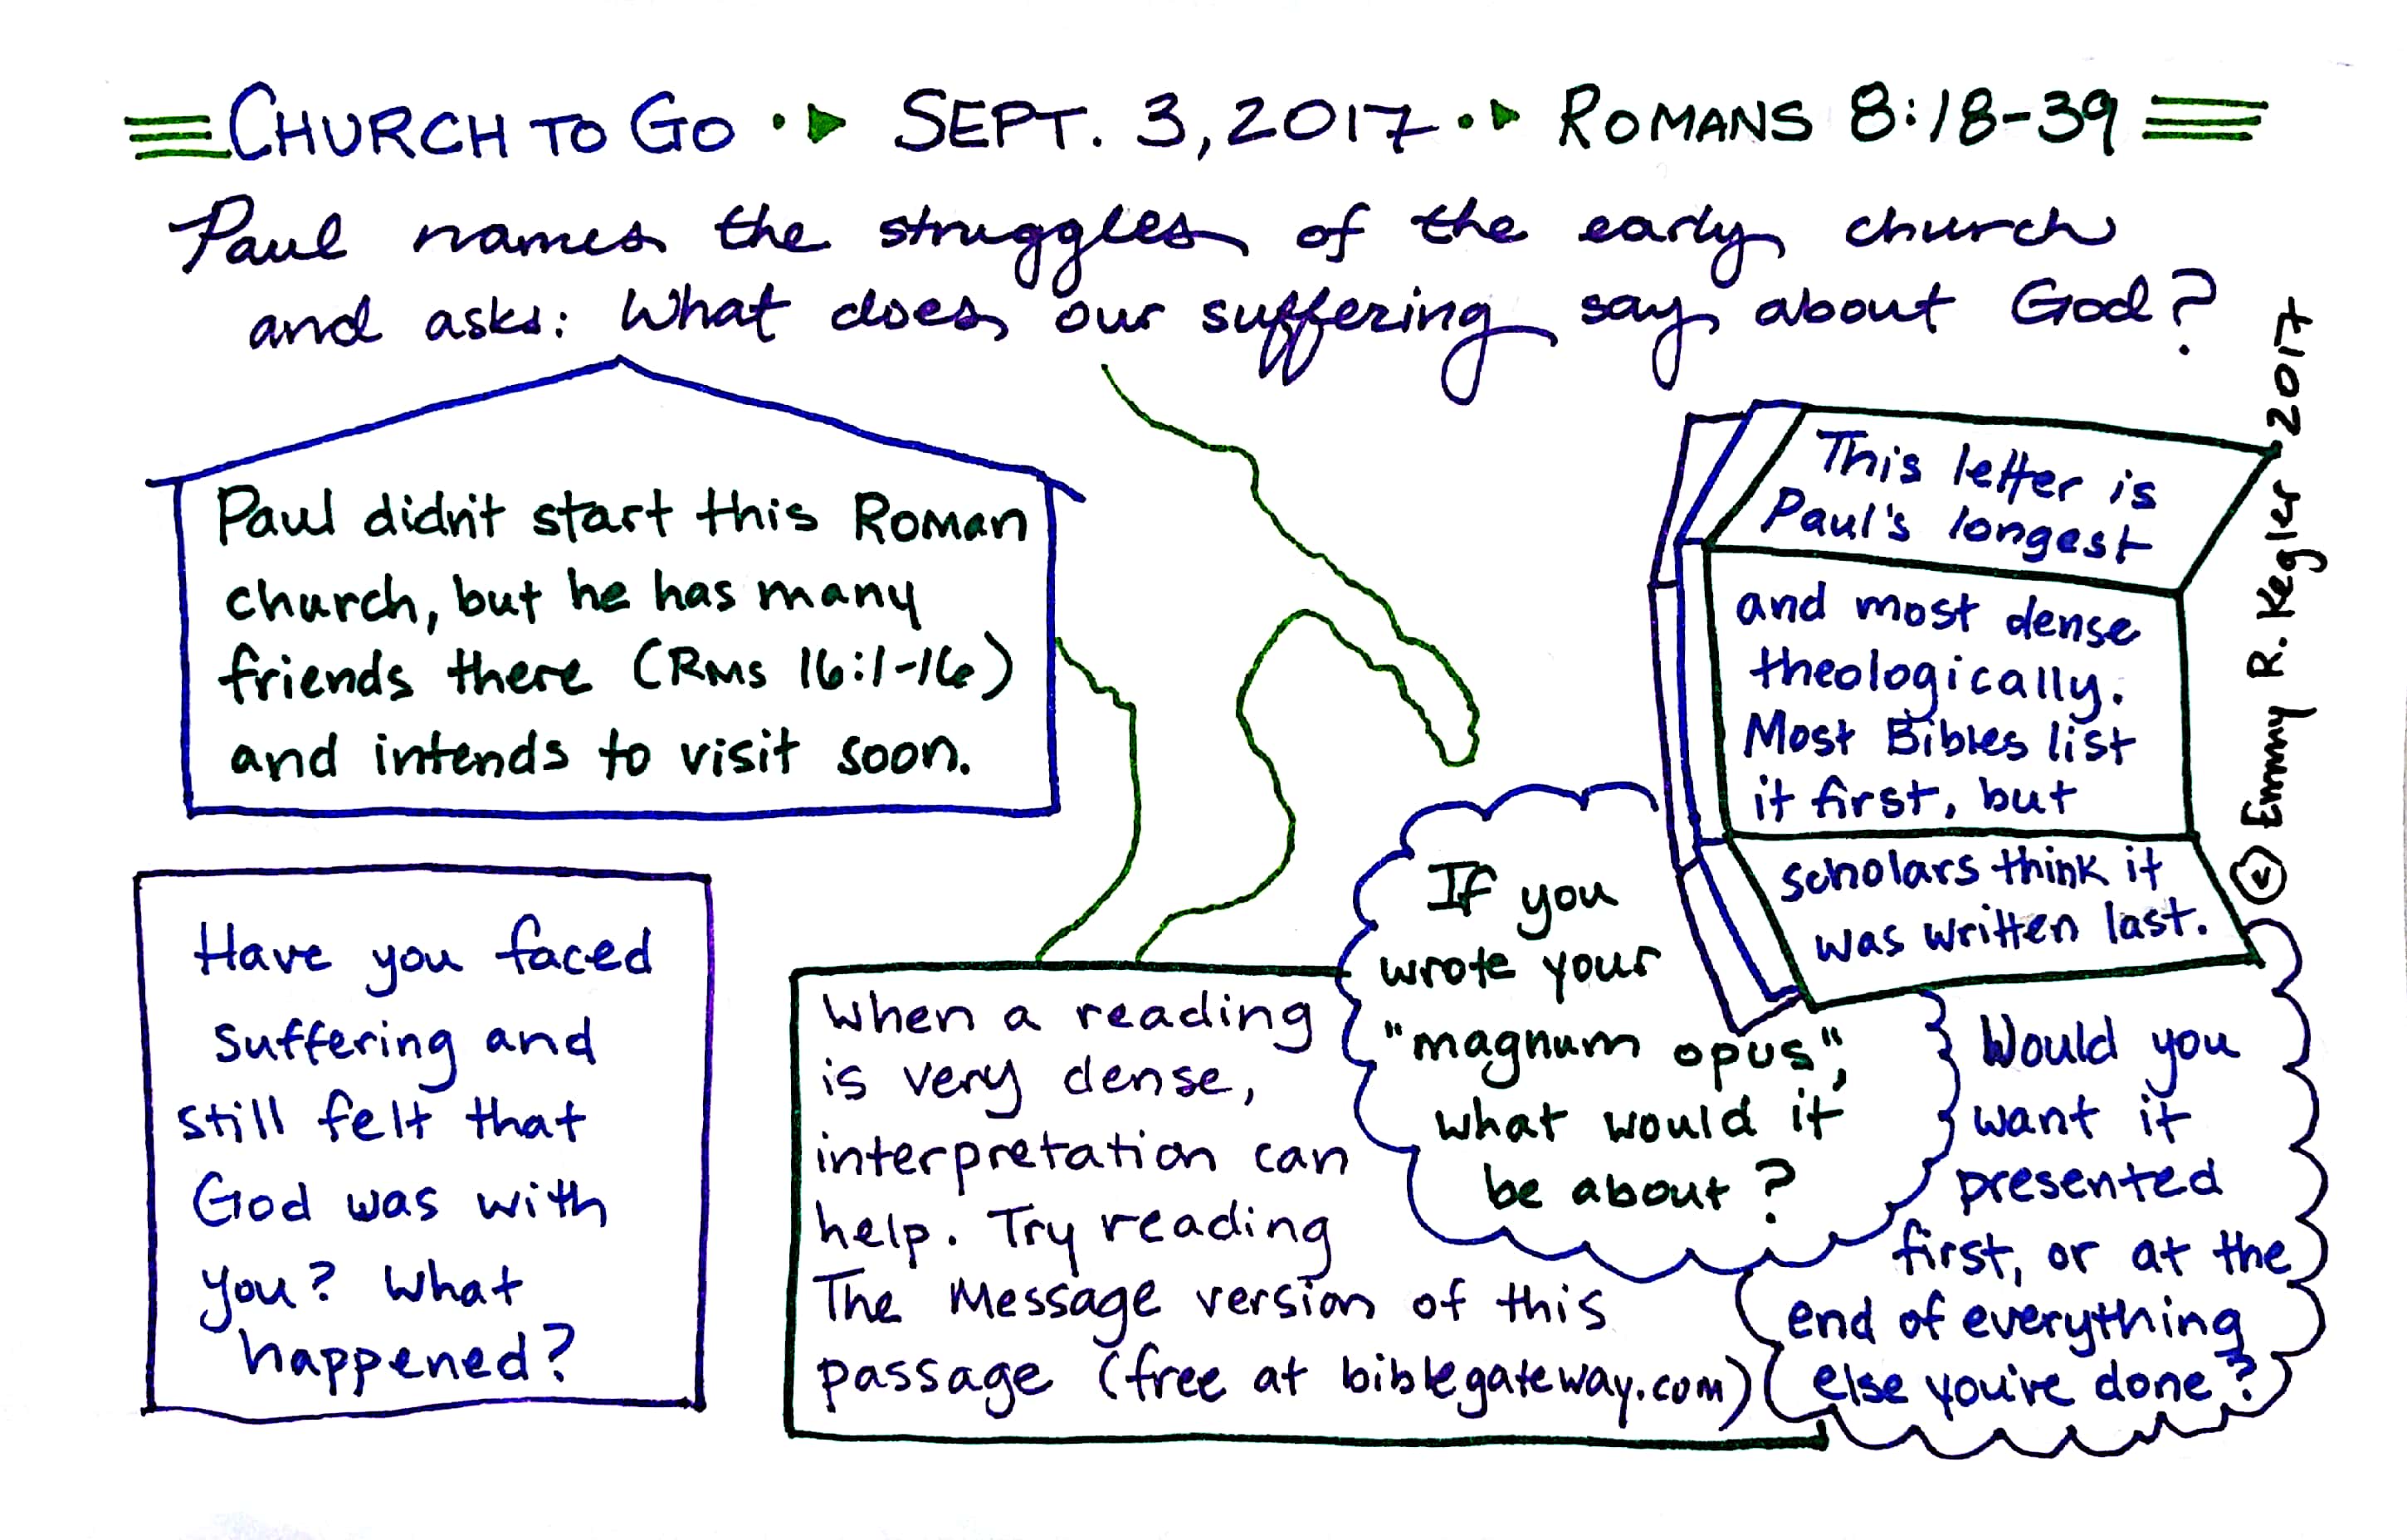 CHURCH TO GO SEPT. 3, 2017 ROMANS 8:18-39
Paul names the struggles of the early church
and asks: What does our suffering say about God?
Paul didn't start this Roman
church, but he has many
friends there (Rms 16:1-16)
and intends to visit soon.
This letter is
Paul's longest
and most dense
theologically.
Most Bibles list
it first, but
scholars think it
was written last.
© Emmy R. Kegler 2017
Have you faced
suffering and
still felt that
God was with
you? What
happened?
When a reading
is very dense,
interpretation can
help. Try reading
The Message version of this
passage (free at biblegateway.com)
If you
wrote your
"magnum opus",
what would it
be about?
Would you
want it
presented
first, or at the
end of everything
else you've done?